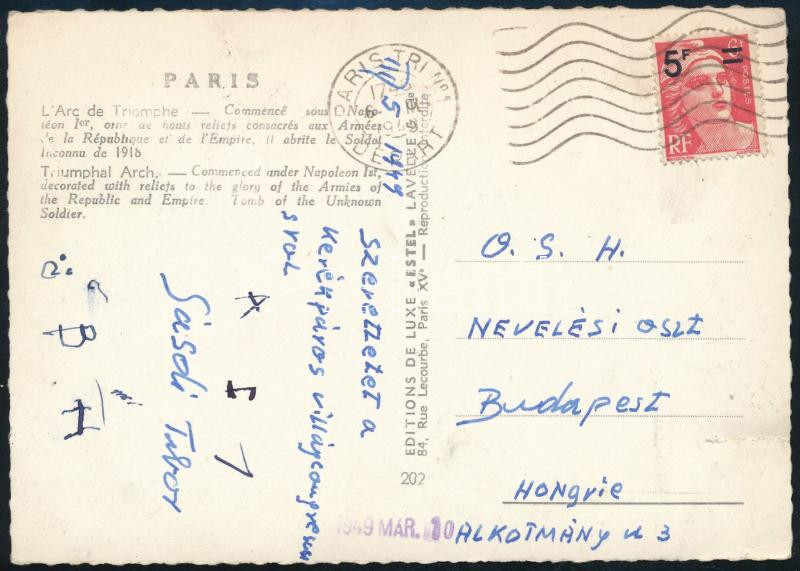 PARIS
L'Arc de Triomphe — Commencé sous Napo-
léon Ier, orné de hauts reliefs consacrés aux Armées
de la République et de l'Empire, il abrite le Soldat
Inconnu de 1918
Triumphal Arch. — Commenced under Napoleon Ist,
decorated with reliefs to the glory of the Armies of
the Republic and Empire. Tomb of the Unknown
Soldier.
PARIS TRI No 1
DEPART
1949
5F
POSTES
RF
EDITIONS DE LUXE «ESTEL» LAVELLE
84, Rue Lecourbe, Paris XVe — Reproduction interdite
202
Szeretettet a
Kerékpáros világcongressu
sról
Sásdi Tibor
O. S. H.
NEVELÉSI OSZT
Budapest
HONGRIE
ALKOTMÁNY u 3
1949 MÁR. 10